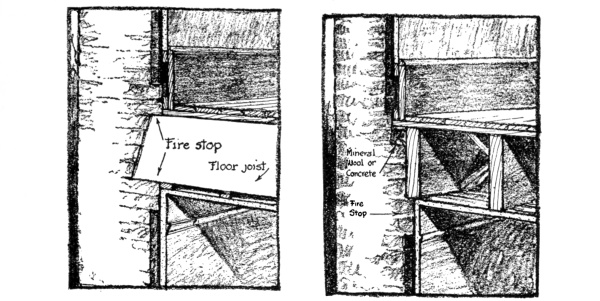 Fire stop
Floor joist
Mineral
Wool or
Concrete
Fire
Stop